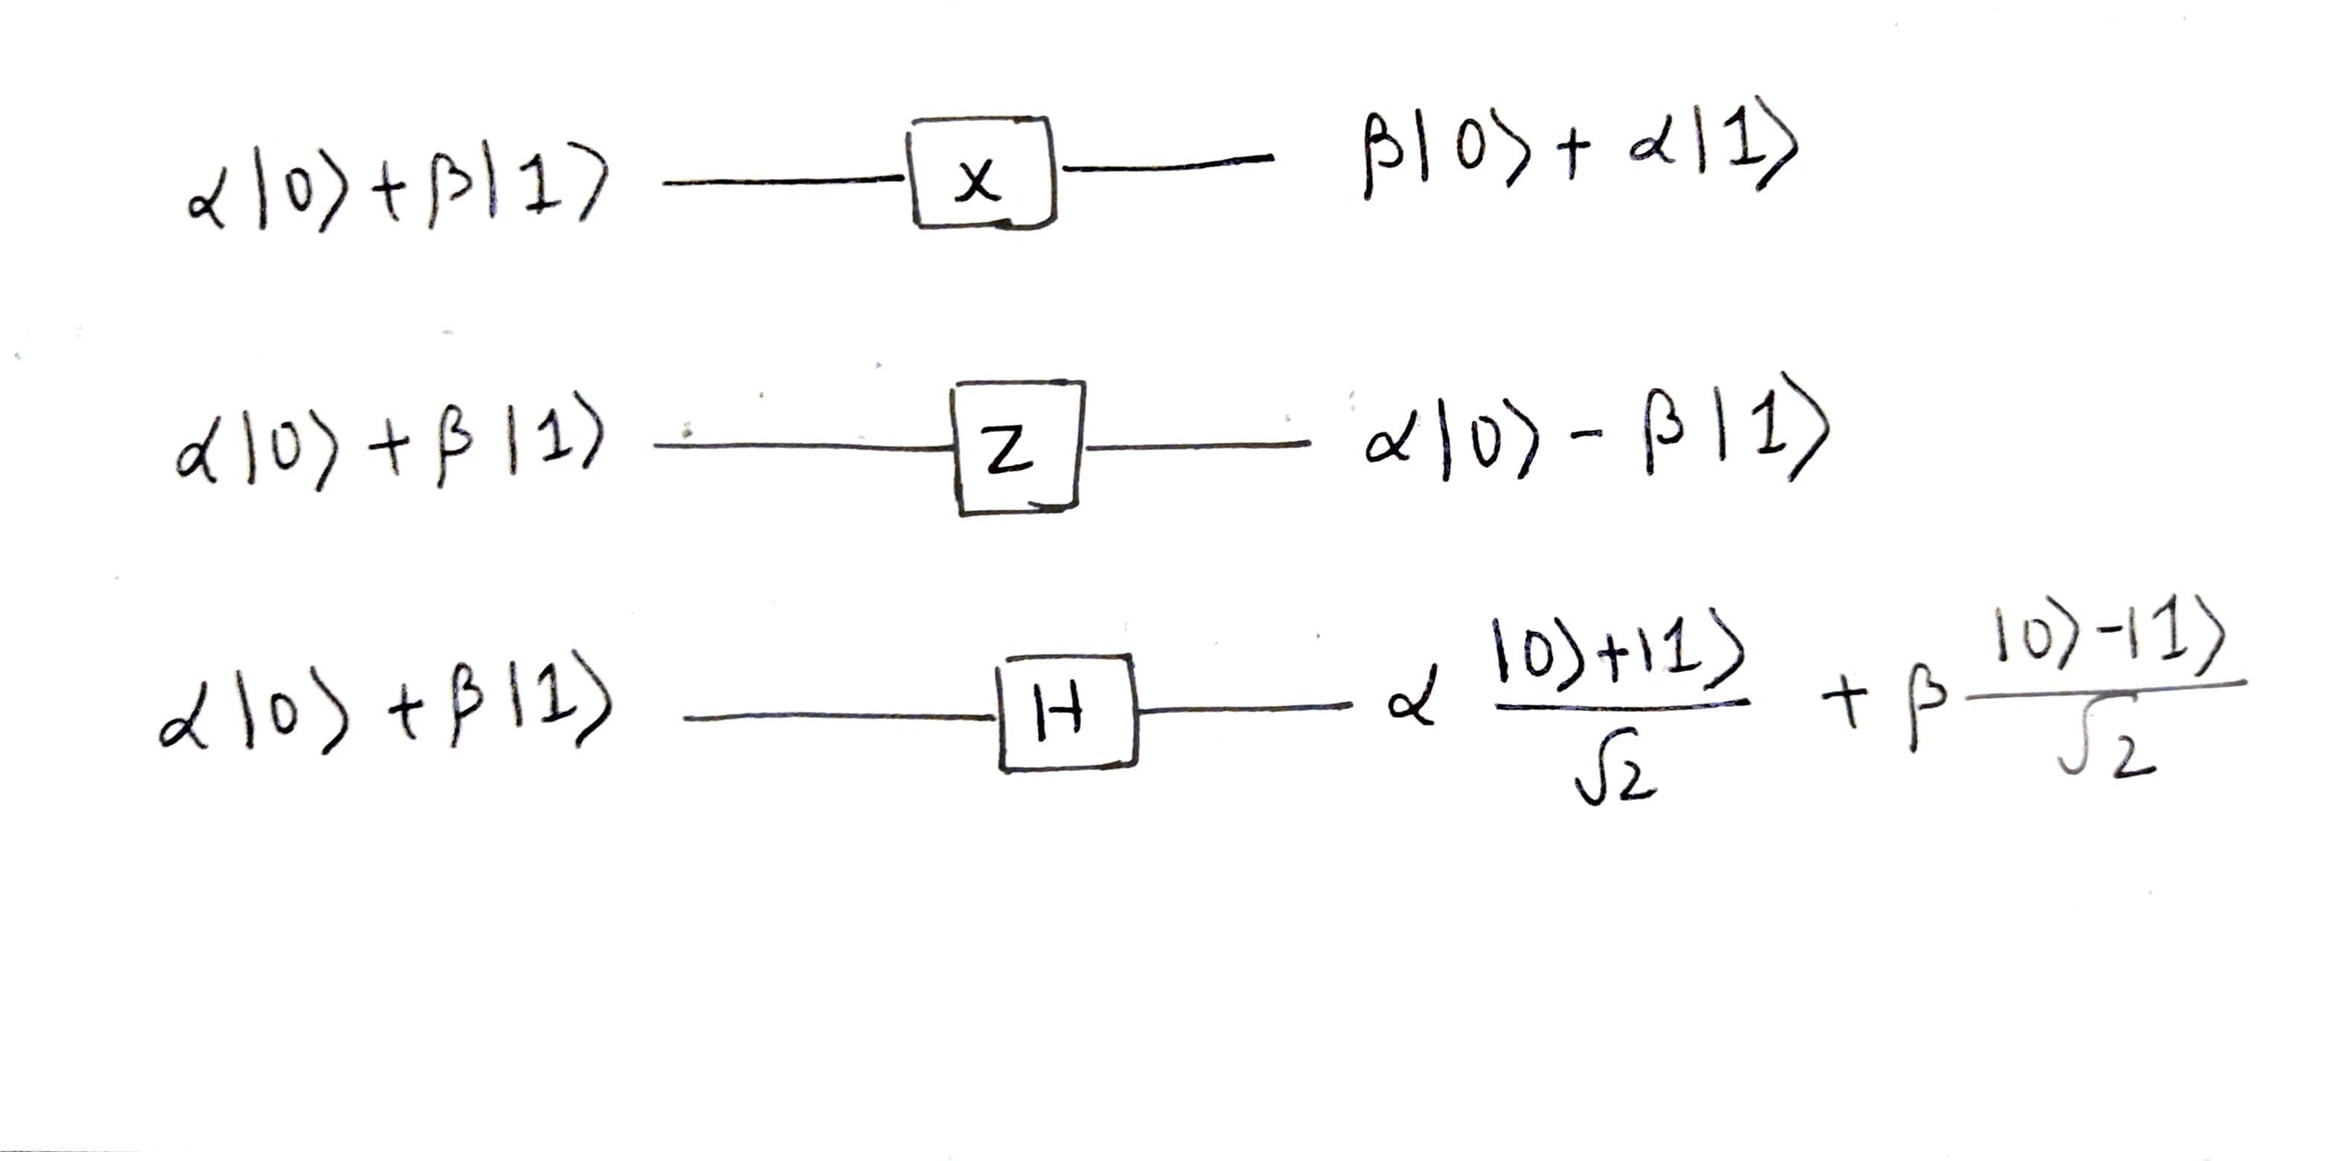 α|0⟩+β|1⟩ X β|0⟩+α|1⟩
α|0⟩+β|1⟩ Z α|0⟩-β|1⟩
α|0⟩+β|1⟩ H α (|0⟩+|1⟩)/√2 + β (|0⟩-|1⟩)/√2